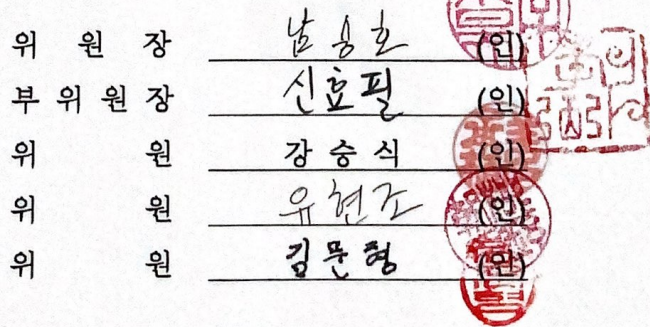 위 원 장 남승호 (인)
부 위 원 장 신효필 (인)
위 원 강승식 (인)
위 원 유현조 (인)
위 원 김문형 (인)